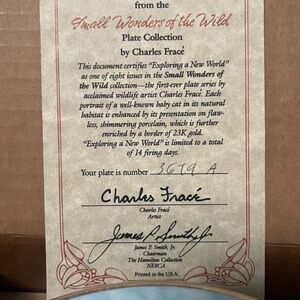 from the
Small Wonders of the Wild
Plate Collection
by Charles Fracé
This document certifies "Exploring a New World"
as one of eight issues in the Small Wonders of
the Wild collection—the first-ever plate series by
acclaimed wildlife artist Charles Fracé. Each
portrait of a well-known baby cat in its natural
habitat is enhanced by its presentation on flaw-
less, shimmering porcelain, which is further
enriched by a border of 23K gold.
"Exploring a New World" is limited to a total
of 14 firing days.
Your plate is number 3679 A
Charles Fracé
Charles Fracé
Artist
James P. Smith, Jr.
James P. Smith, Jr.
Chairman
The Hamilton Collection
Printed in the U.S.A.